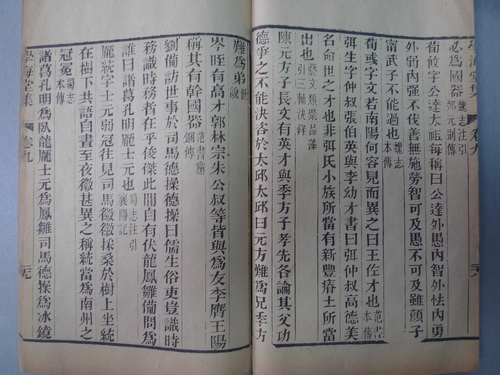 學海堂集 卷九
必爲國器 注引鄭元別傳
荀攸字公達太祖每稱曰公達外愚內智外怯內勇
外弱內强不伐善無施勞智可及愚不可及雖顏子
甯武子不能過也 魏志本傳
荀彧字文若南陽何容見而異之曰王佐才也 范書本傳
弭生字仲叔張伯英與李幼才書曰弭仲叔高德美
名命世之才也非弭氏小族所當有新豐瘠土所當
出 藝文類聚品藻引三輔決錄
陳元方子長文有英才與季方子孝先各論其父功
德爭之不能決咨於太邱太邱曰元方難爲兄季方
難爲弟 世說
岑晊有高才郭林宗朱公叔等皆與爲友李膺王暢
稱其有幹國器 范書黨錮傳
劉備訪世事於司馬德操德操曰儒生俗吏豈識時
務識時務者在乎俊傑此間自有伏龍鳳雛備問爲
誰曰諸葛孔明龐士元也 蜀志注引襄陽記
龐統字士元弱冠往見司馬徽徽採桑於樹上坐統
在樹下共語自晝至夜徽甚異之稱統當爲南州之
冠冕 蜀志本傳
諸葛孔明爲臥龍龐士元爲鳳雛司馬德操爲冰鏡
學海堂集 卷九